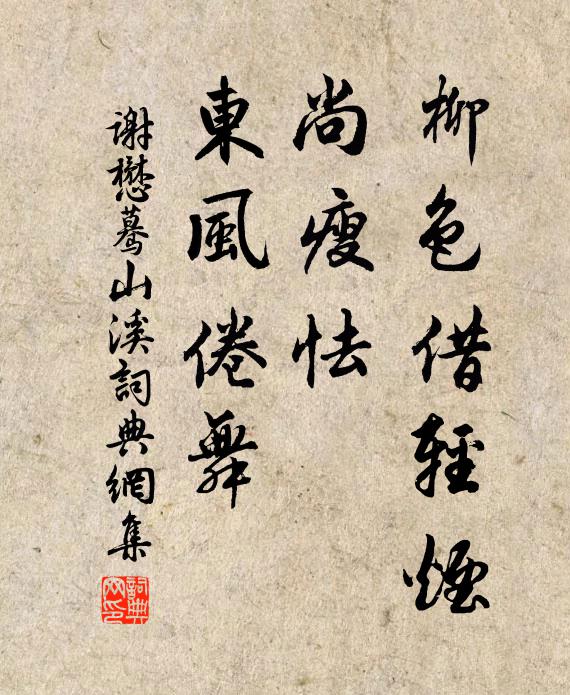 柳色借輕煙
尚瘦怯
東風倦舞
謝懋驀山溪詞典網集
詞典网印